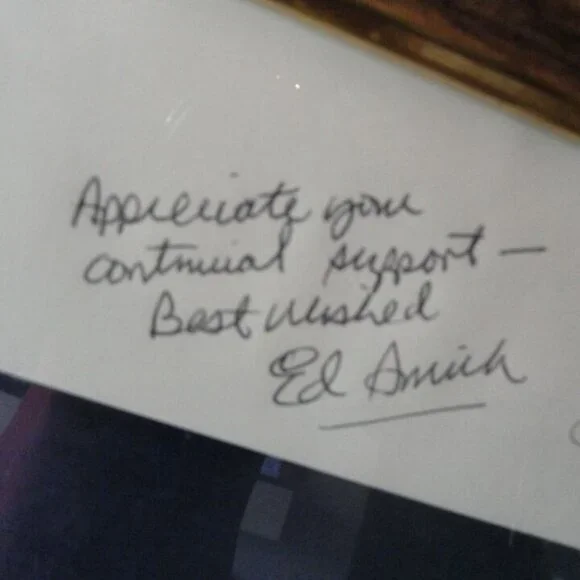 Appreciate your
continual support —
Best Wished
Ed Amick